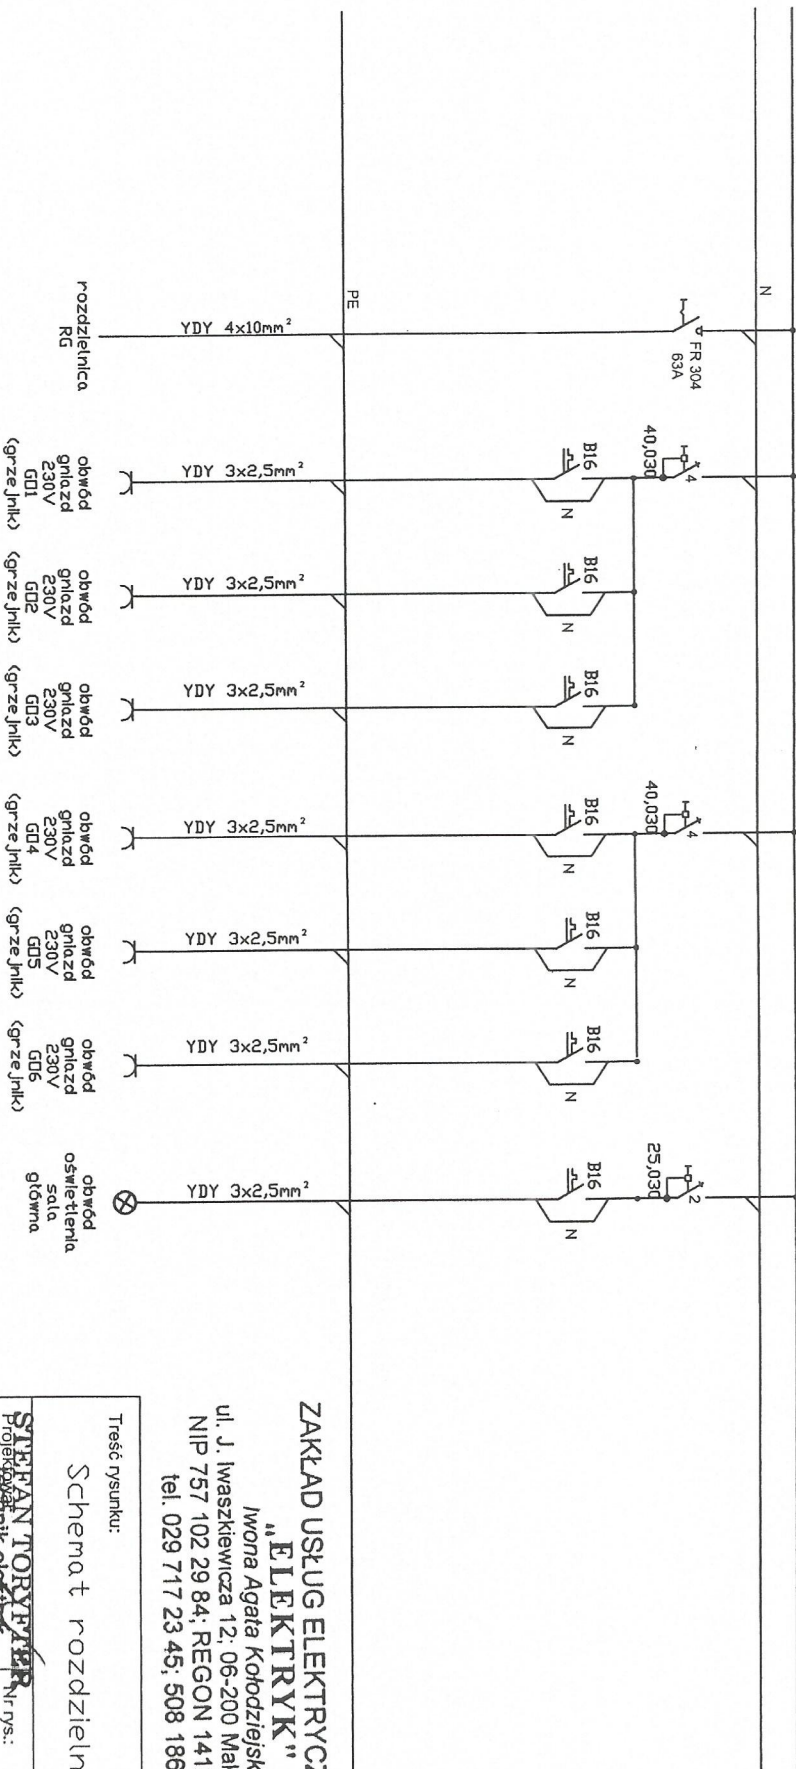 N
FR 304
63A
PE
YDY 4x10mm²
rozdzielnica
RG
40,030
4
B16
N
YDY 3x2,5mm²
obwód
gniazd
230V
GO1
(grzejnik)
B16
N
YDY 3x2,5mm²
obwód
gniazd
230V
GO2
(grzejnik)
B16
N
YDY 3x2,5mm²
obwód
gniazd
230V
GO3
(grzejnik)
40,030
4
B16
N
YDY 3x2,5mm²
obwód
gniazd
230V
GO4
(grzejnik)
B16
N
YDY 3x2,5mm²
obwód
gniazd
230V
GO5
(grzejnik)
B16
N
YDY 3x2,5mm²
obwód
gniazd
230V
GO6
(grzejnik)
25,030
2
B16
N
YDY 3x2,5mm²
obwód
oświetlenia
sala
główna
ZAKŁAD USŁUG ELEKTRYCZ
"ELEKTRYK"
Iwona Agata Kołodziejsk
ul. J. Iwaszkiewicza 12; 06-200 Mak
NIP 757 102 29 84; REGON 141
tel. 029 717 23 45; 508 186
Treść rysunku:
Schemat rozdzieln
STEFAN TORYFTER
Projektował:
Nr rys.: